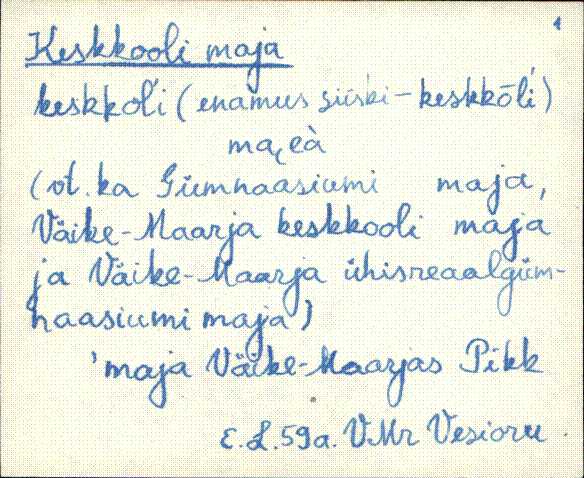 1
Keskkooli maja
keskkoĺi (enamus siiski – keskkōĺi)
ma͔eà
(vt. ka Gümnaasiumi maja,
Väike-Maarja keskkooli maja
ja Väike-Maarja ühisreaalgüm-
naasiumi maja)
'maja Väike-Maarjas Pikk
E.L.59a. VMr Vesioru